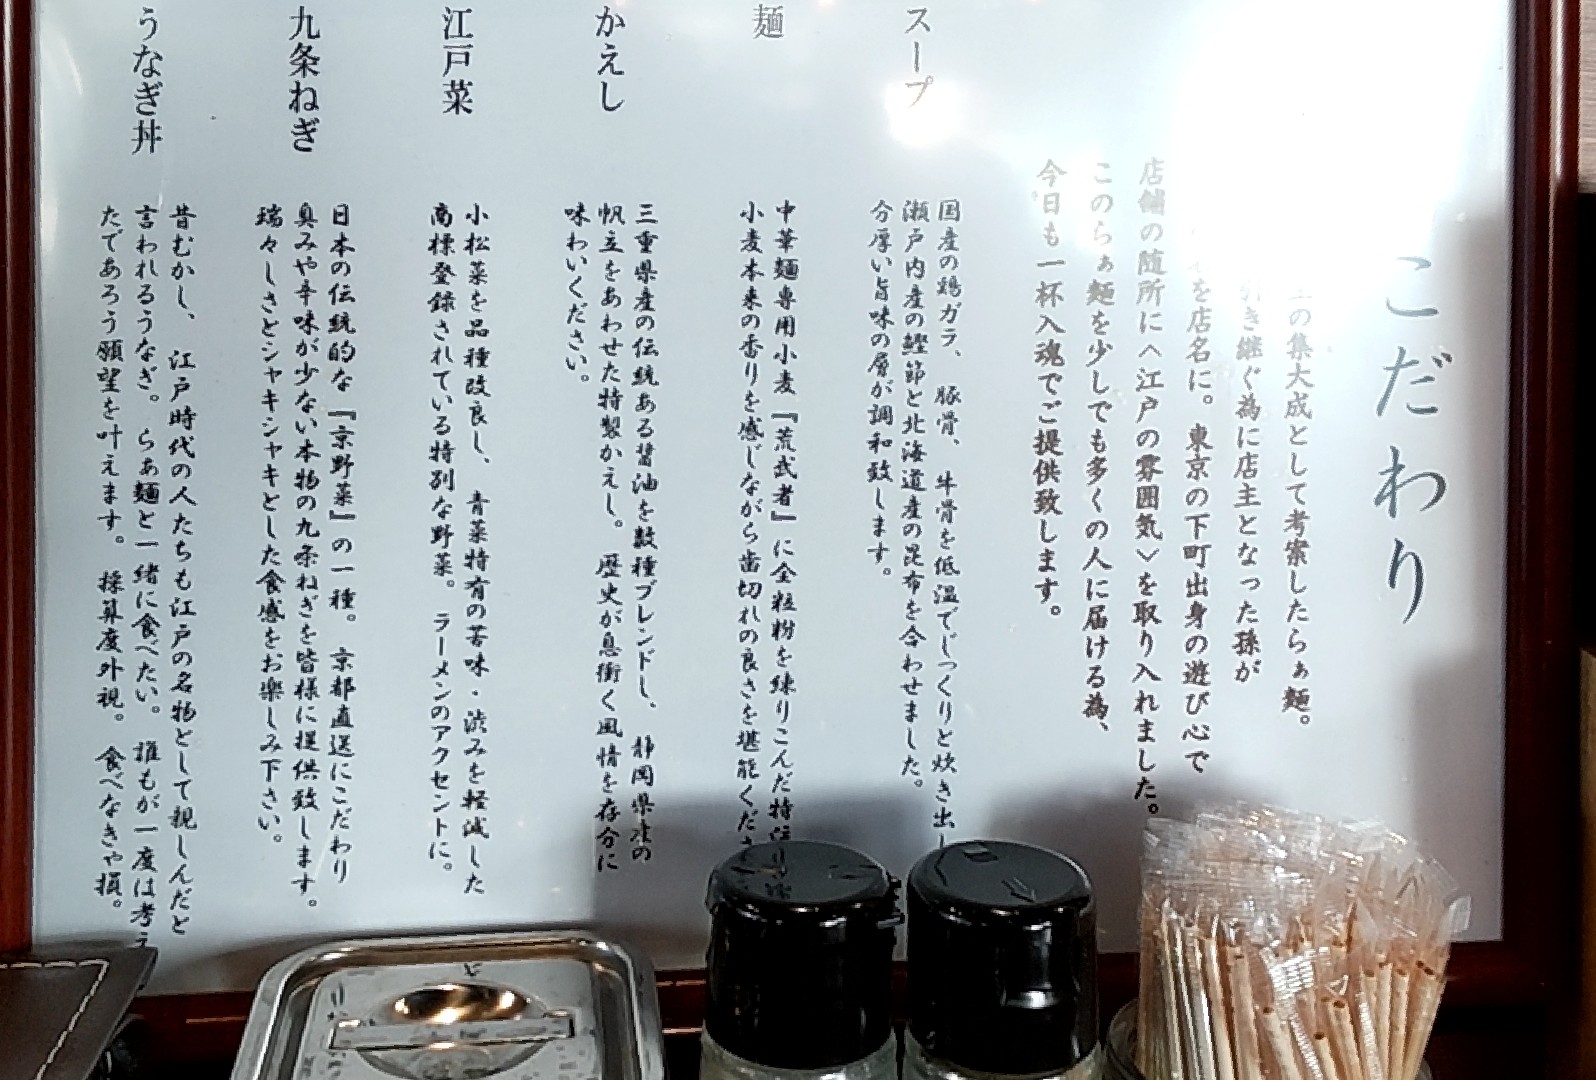 こだわり
の集大成として考案したらぁ麺。
引き継ぐ為に店主となった孫が
を店名に。東京の下町出身の遊び心で
店舗の随所に＜江戸の雰囲気＞を取り入れました。
このらぁ麺を少しでも多くの人に届ける為、
今日も一杯入魂でご提供致します。
スープ
国産の鶏ガラ、豚骨、牛骨を低温でじっくりと炊き出し
瀬戸内産の鰹節と北海道産の昆布を合わせました。
分厚い旨味の層が調和致します。
麺
中華麺専用小麦『荒武者』に全粒粉を練りこんだ特注
小麦本来の香りを感じながら歯切れの良さを堪能くださ
かえし
三重県産の伝統ある醤油を数種ブレンドし、静岡県産の
帆立をあわせた特製かえし。歴史が息衝く風情を存分に
味わいください。
江戸菜
小松菜を品種改良し、青菜特有の苦味・渋みを軽減した
商標登録されている特別な野菜。ラーメンのアクセントに。
九条ねぎ
日本の伝統的な『京野菜』の一種。京都直送にこだわり
臭みや辛味が少ない本物の九条ねぎを皆様に提供致します。
瑞々しさとシャキシャキとした食感をお楽しみ下さい。
うなぎ丼
昔むかし、江戸時代の人たちも江戸の名物として親しんだと
言われるうなぎ。らぁ麺と一緒に食べたい。誰もが一度は考え
たであろう願望を叶えます。採算度外視。食べなきゃ損。